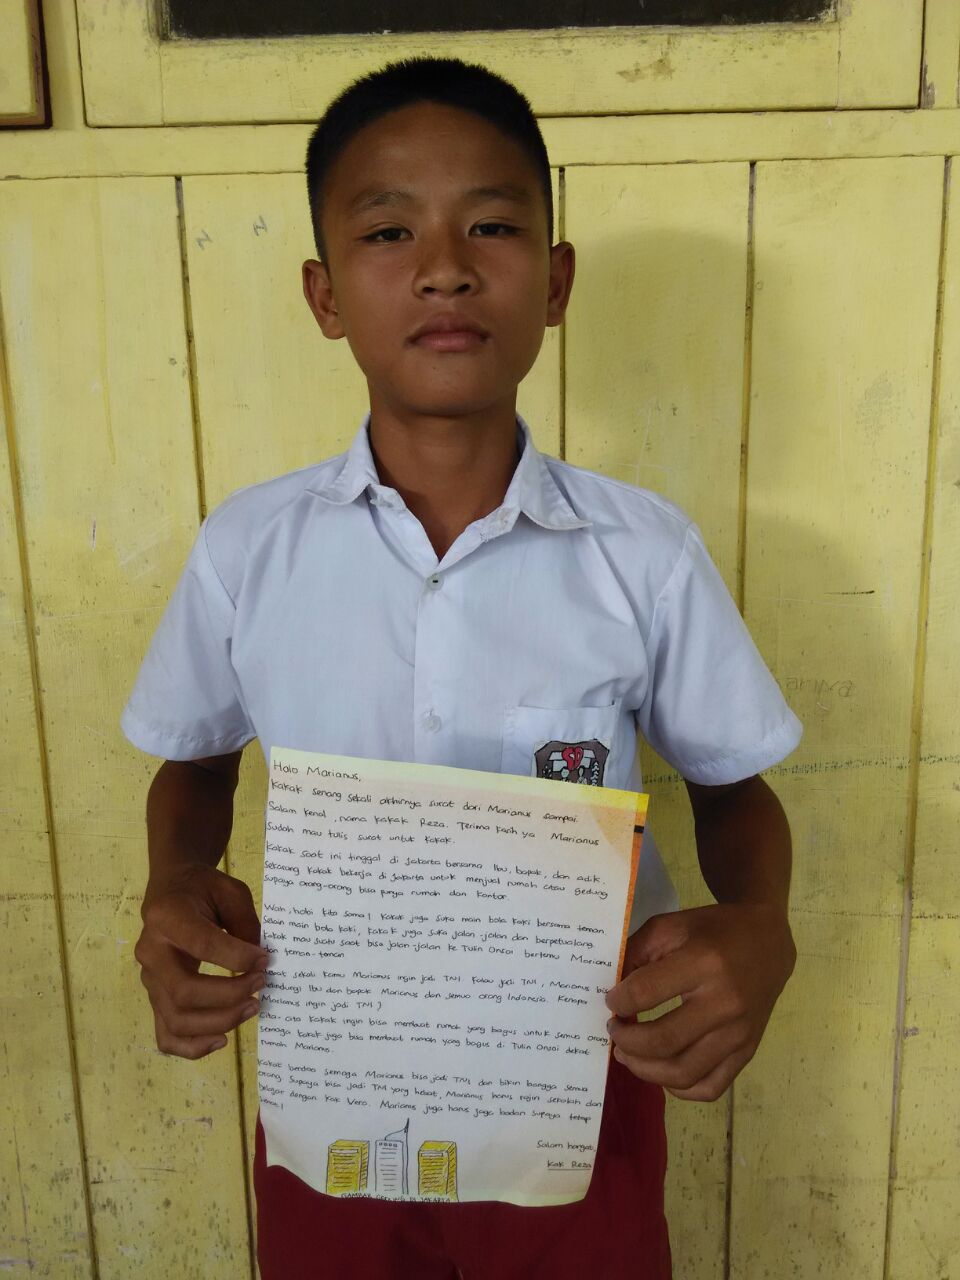 Halo Marianus,
Kakak senang sekali akhirnya surat dari Marianus sampai.
Salam kenal, nama kakak Reza. Terima kasih ya Marianus
Sudah mau tulis surat untuk kakak.
Kakak saat ini tinggal di Jakarta bersama Ibu, bapak, dan adik.
Sekarang kakak bekerja di Jakarta untuk menjual rumah atau gedung
supaya orang-orang bisa punya rumah dan kantor.
Wah, hobi kita sama! Kakak juga suka main bola kaki bersama teman.
Selain main bola kaki, kakak juga suka jalan-jalan dan berpetualang.
Kakak mau suatu saat bisa jalan-jalan ke Tulin Onsoi bertemu Marianus
dan teman-teman
Hebat sekali kamu Marianus ingin jadi TNI. Kalau jadi TNI, Marianus bis
melindungi Ibu dan bapak Marianus dan semua orang Indonesia. Kenapa
Marianus ingin jadi TNI?
Cita-cita kakak ingin bisa membuat rumah yang bagus untuk semua orang,
semoga kakak juga bisa membuat rumah yang bagus di Tulin Onsoi dekat
rumah Marianus.
Kakak berdoa semoga Marianus bisa jadi TNI dan bikin bangga semua
orang. Supaya bisa jadi TNI yang hebat, Marianus harus rajin sekolah dan
belajar dengan kak Vero. Marianus juga harus jaga badan supaya tetap
Salam hangat,
Kak Reza
GAMBAR GEDUNG DI JAKARTA
SD